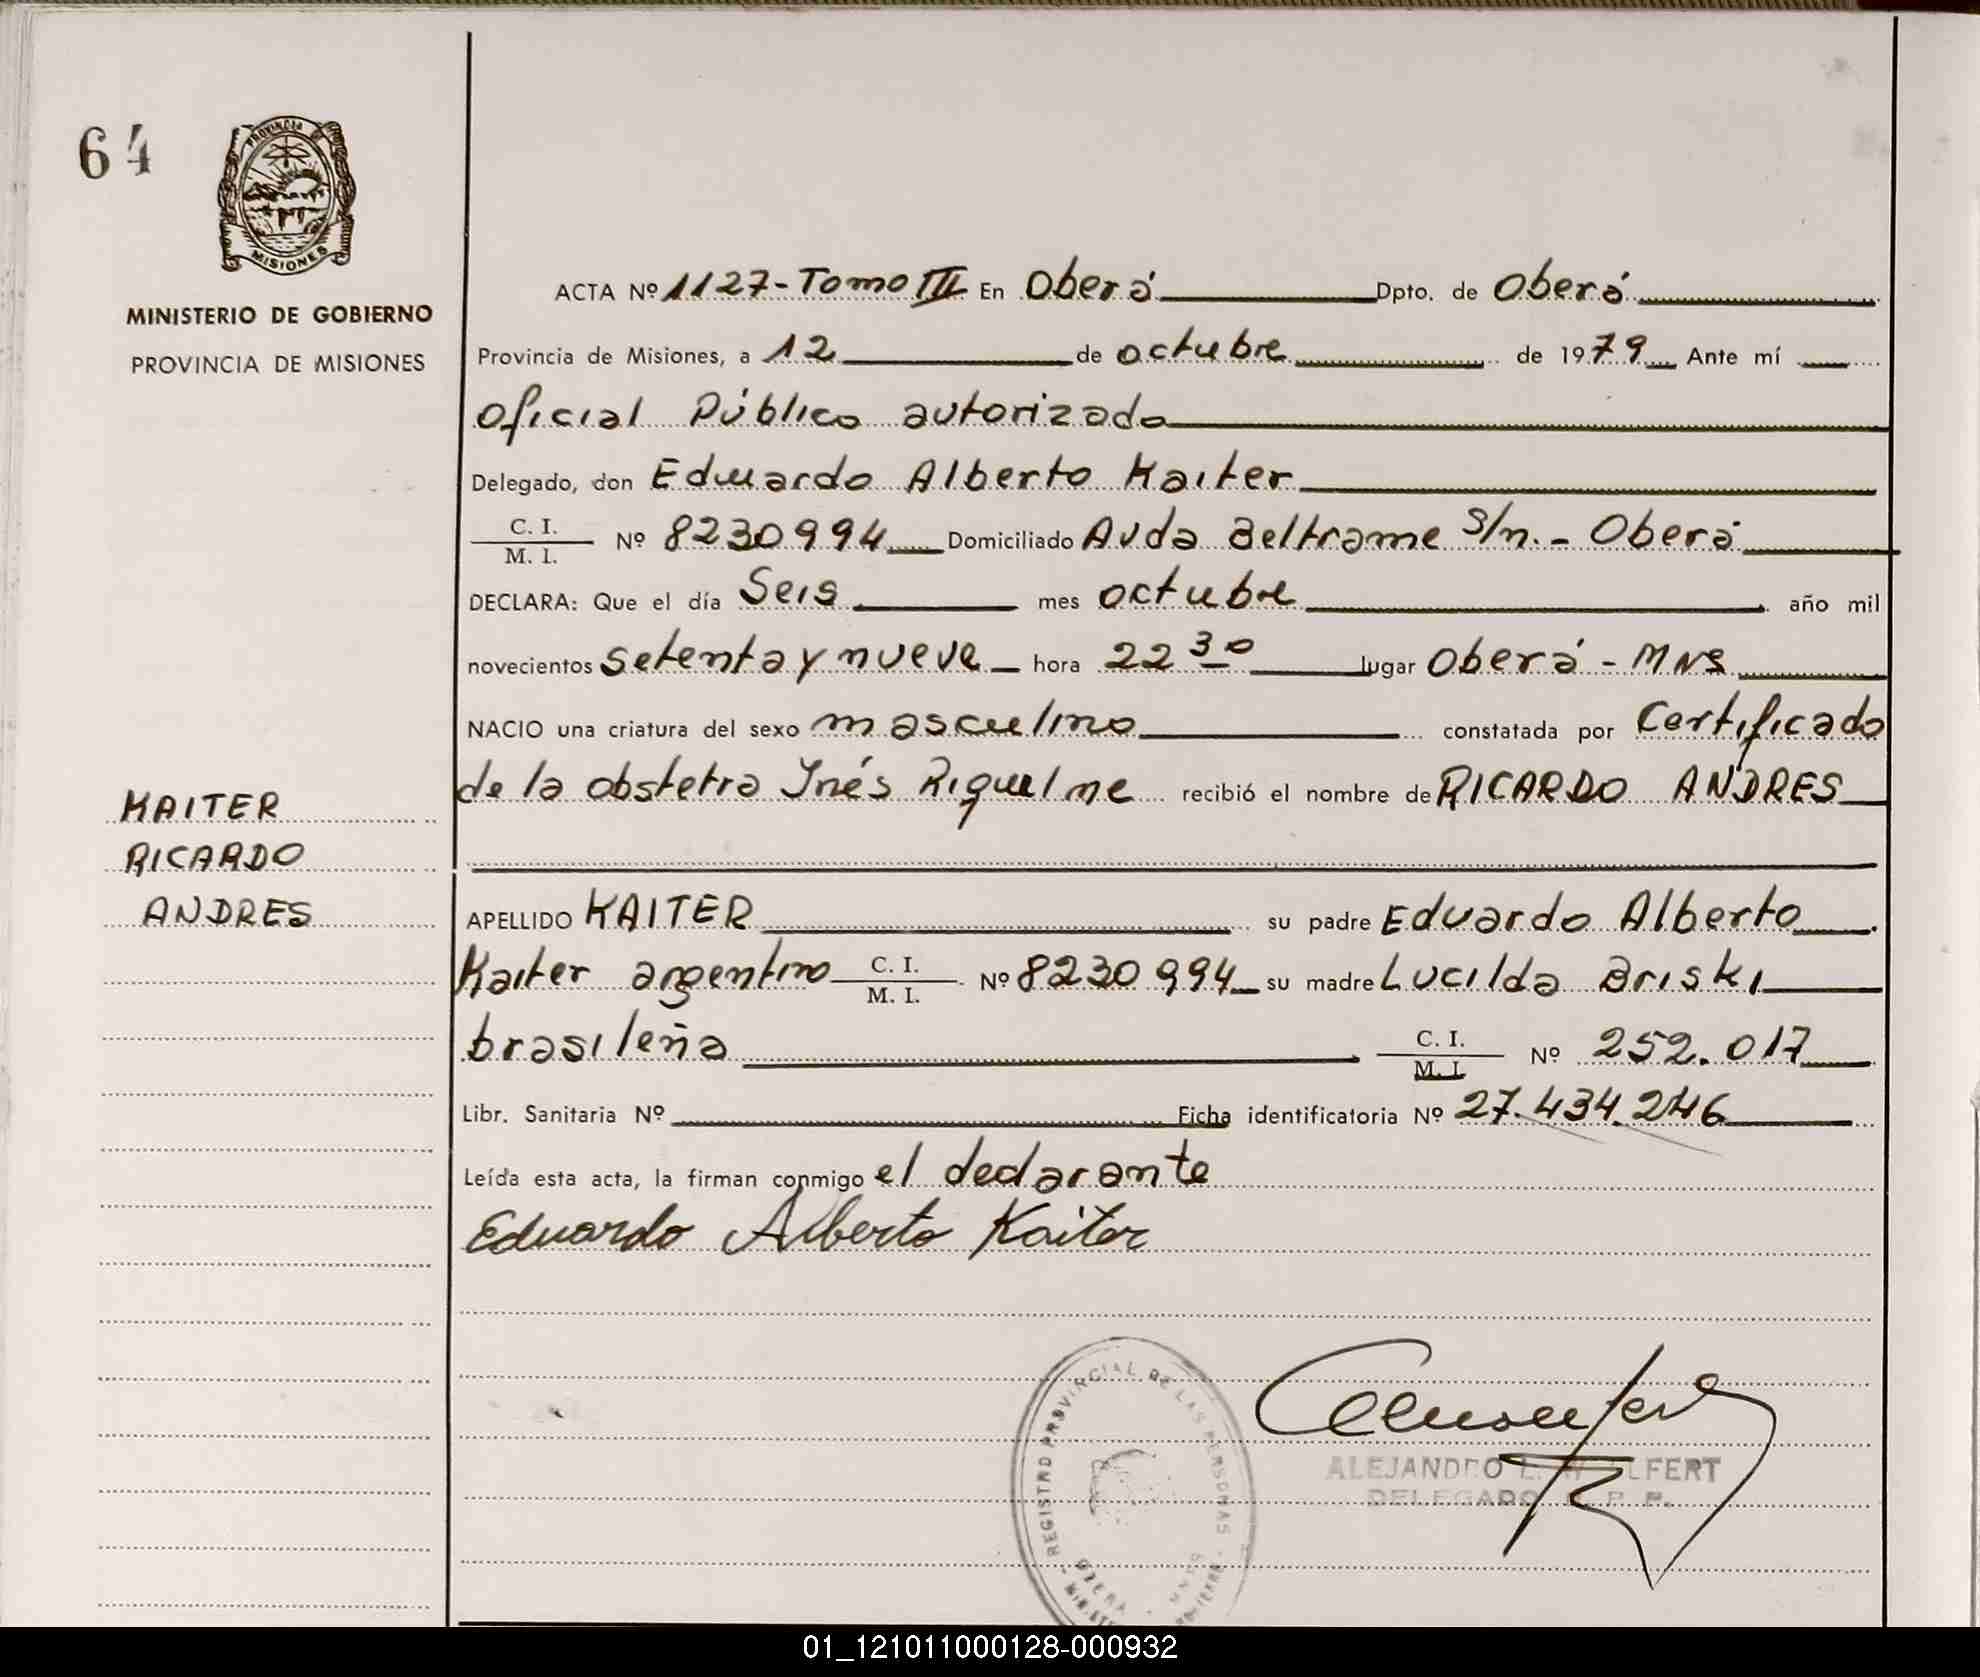 64
PROVINCIA
MISIONES
MINISTERIO DE GOBIERNO
PROVINCIA DE MISIONES
ACTA Nº 1127-Tomo III En Oberá Dpto. de Oberá
Provincia de Misiones, a 12 de octubre de 1979 Ante mí
Oficial Público autorizado
Delegado, don Eduardo Alberto Kaiter
C. I.
M. I. Nº 8230994 Domiciliado Avda Beltrame s/n.- Oberá
DECLARA: Que el día Seis mes octubre año mil
novecientos setenta y nueve hora 22 30 lugar Oberá - MNS
NACIO una criatura del sexo masculino constatada por Certificado
de la obstetra Inés Riquelme recibió el nombre de RICARDO ANDRES
KAITER
RICARDO
ANDRES
APELLIDO KAITER su padre Eduardo Alberto
Kaiter argentino C. I. M. I. Nº 8230994 su madre Lucilda Briski
brasileña C. I. M. I. Nº 252.017
Libr. Sanitaria Nº Ficha identificatoria Nº 27.434.246
Leída esta acta, la firman conmigo el declarante
Eduardo Alberto Kaiter
REGISTRO PROVINCIAL DE LAS PERSONAS
OBERA - MNES
ALEJANDRO
DELEGADO R. P. P.
01_121011000128-000932